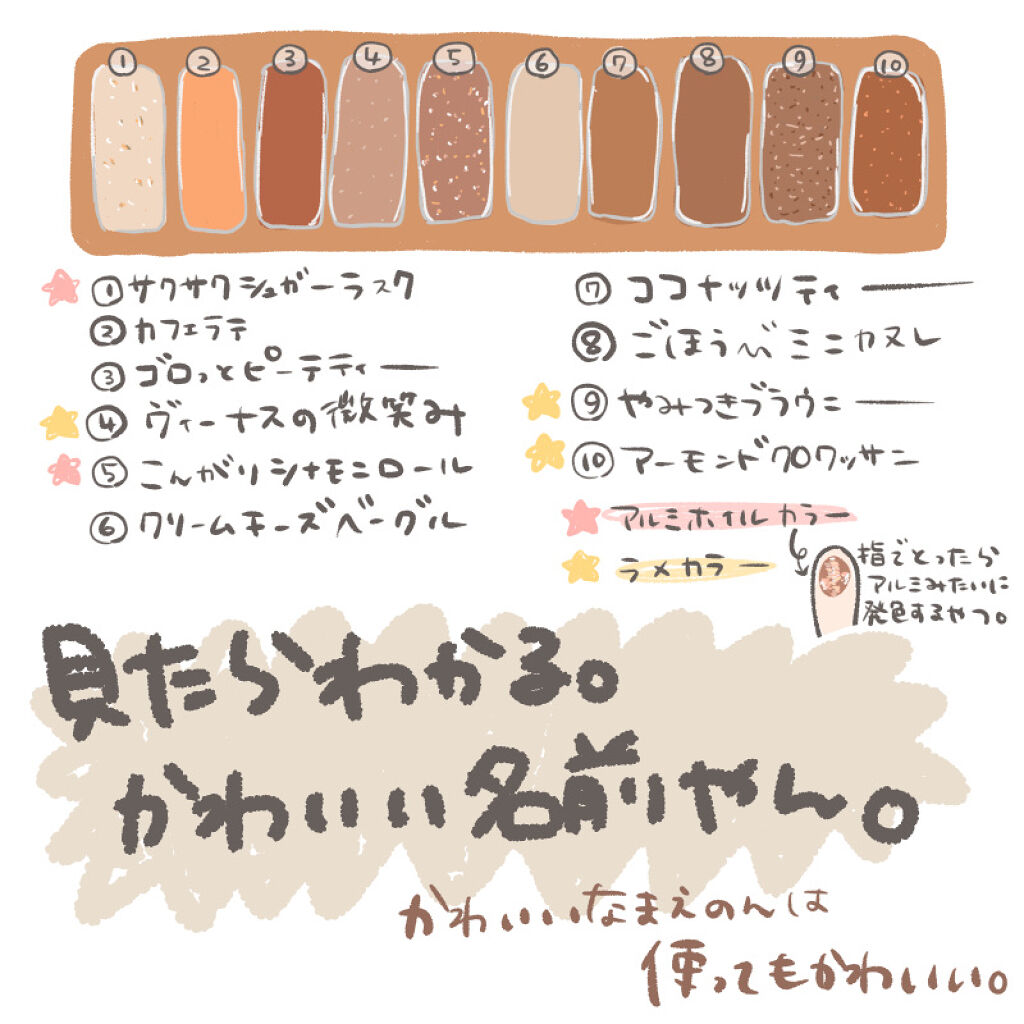 ① ② ③ ④ ⑤ ⑥ ⑦ ⑧ ⑨ ⑩
①サクサクシュガーラスク
②カフェラテ
③ゴロっとピーテティー
④ヴィーナスの微笑み
⑤こんがりシナモンロール
⑥クリームチーズベーグル
⑦ココナッツティー
⑧ごほうびミニカヌレ
⑨やみつきブラウニー
⑩アーモンドクロワッサン
アルミホイルカラー
ラメカラー
指でとったら
アルミみたいに
発色するやつ。
見たらわかる。
かわいい名前やん。
かわいいなまえのんは
使ってもかわいい。